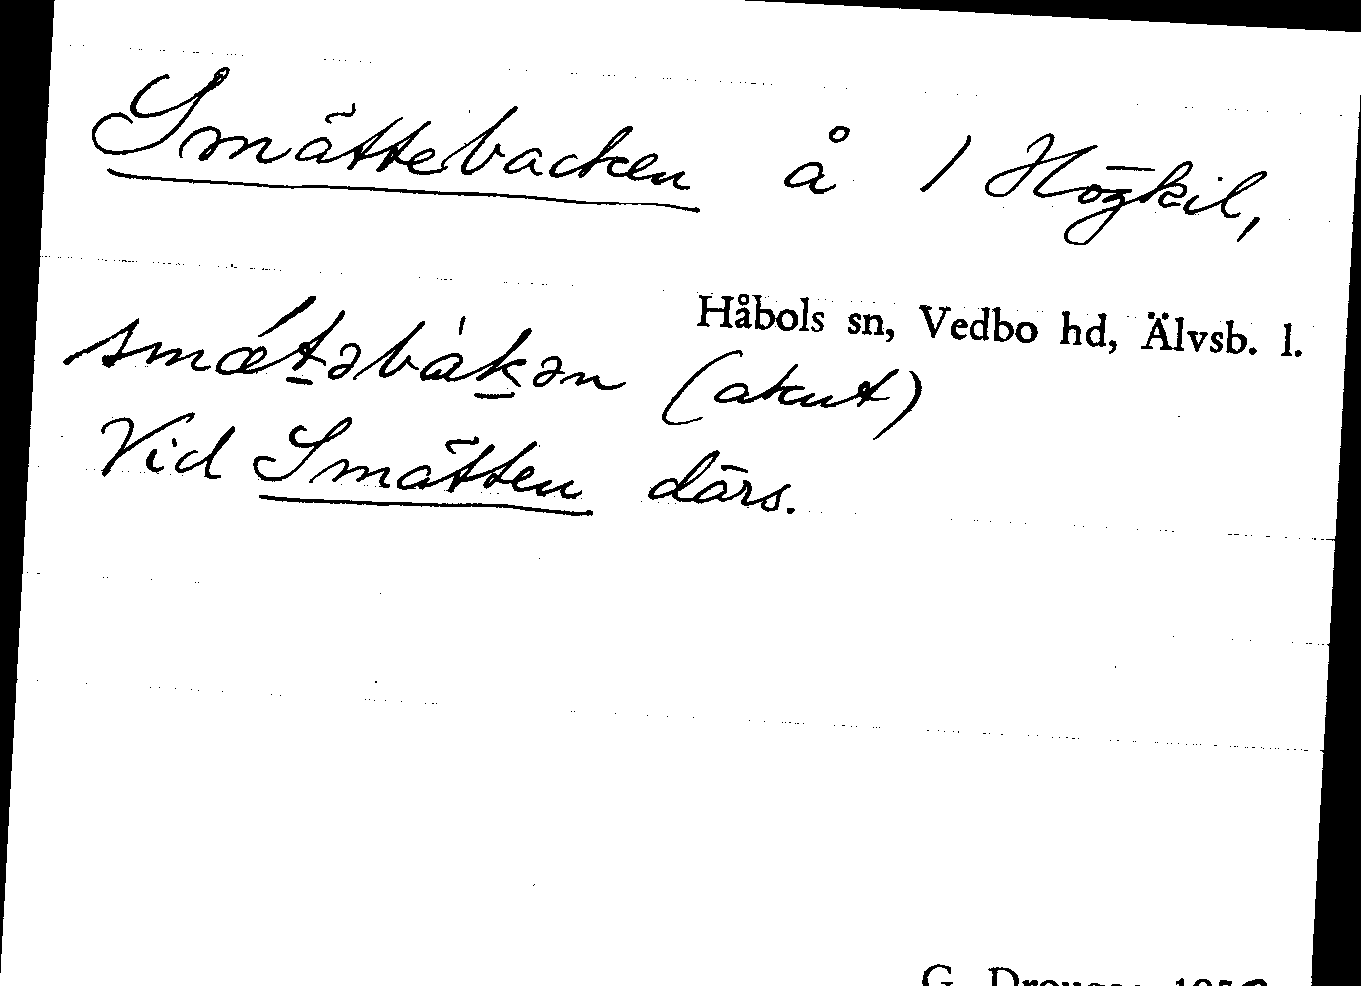 Smättebacken å 1 Högkil,
Håbols sn, Vedbo hd, Älvsb. l.
smǽt̠əbàk̠ən (akut)
Vid Smätten därs.
G.